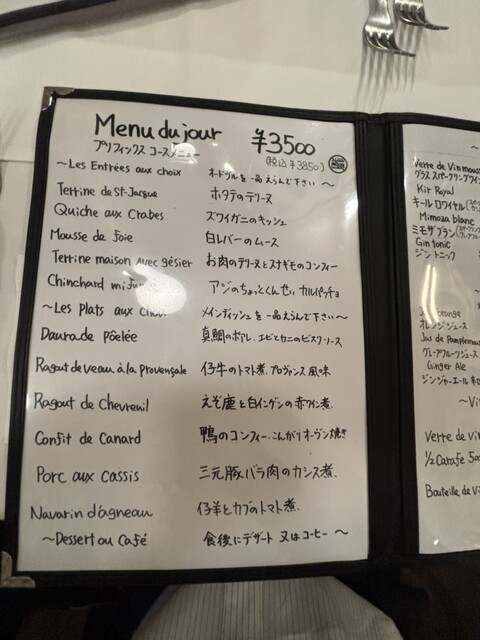 Menu du jour ¥3500
プリフィックス コースメニュー (税込 ¥3850)
~Les Entrées aux choix オードブルを一品えらんで下さい~
Terrine de St-Jacque ホタテのテリーヌ
Quiche aux Crabes ズワイガニのキッシュ
Mousse de foie 白レバーのムース
Terrine maison avec gésier お肉のテリーヌとスナギモのコンフィー
Chinchard mi アジのちょっとくんせい カルパッチョ
~Les Plats aux メインディッシュを一品えらんで下さい~
Daurade pôelée 真鯛のポアレ. エビとカニのビスクソース
Ragout de veau à la provençale 仔牛のトマト煮. プロヴァンス風味
Ragout de Chevreuil えぞ鹿と白インゲンの赤ワイン煮.
Confit de Canard 鴨のコンフィー. こんがりオーヴン焼き
Porc aux cassis 三元豚バラ肉のカシス煮.
Navarin d'agneau 仔羊とカブのトマト煮.
~Dessert ou Café 食後にデザート 又はコーヒー~
Verre de Vin mous
グラス スパークリングワイン
Kir Royal
キールロワイヤル
Mimoza blanc
ミモザブラン
Gin tonic
ジントニック
orange
オレンジジュース
Jus de Pamplemou
グレープフルーツジュース
Ginger Ale
ジンジャーエール
~Vi
Verre de vin
1/2 Carafe 500
Bouteille de Vi